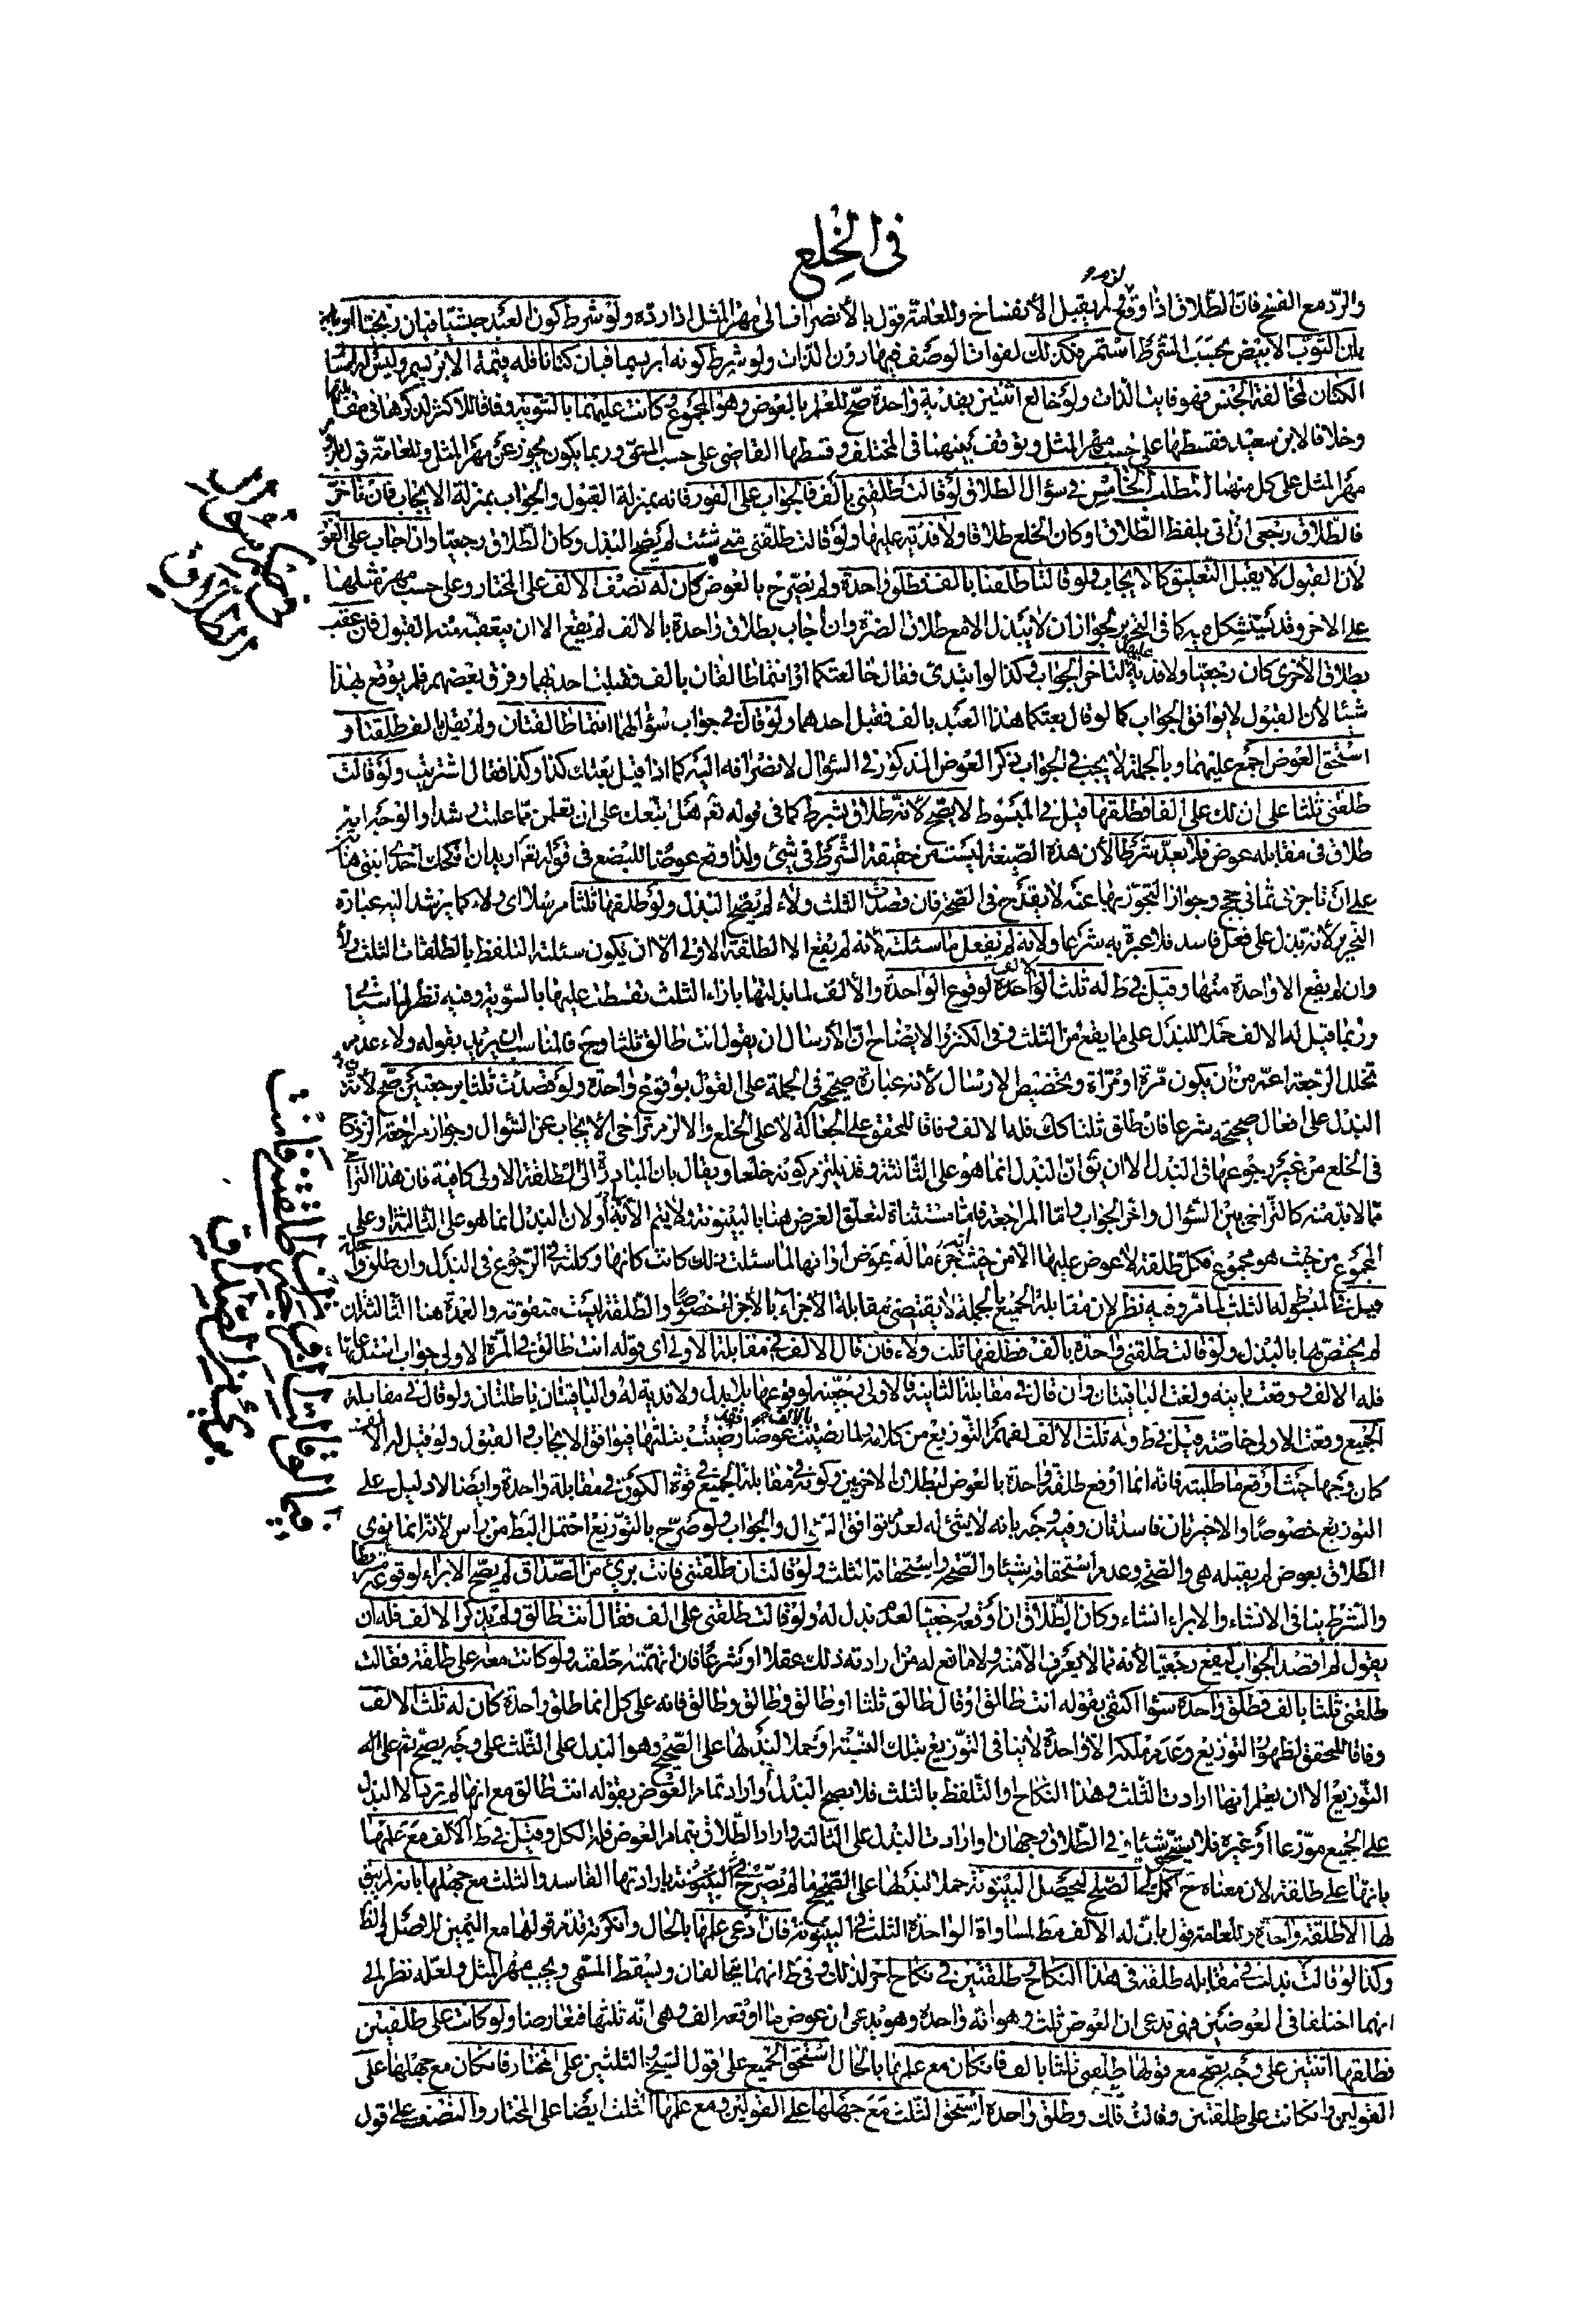 في الخلع
والرد مع الفسخ فان الطلاق اذا وقع لم يقبل الانفساخ وللعامة قول بالانصراف الى مهر المثل اذا رده ولو شرط كون العبد حبشيا فبان زنجيا او
بان الثوب الابيض بحسب الشرط اسمر فكذلك لفوات الوصف فيها دون الذات ولو شرط كونه ابريسما فبان كتانا فله قيمة الابريسم وليس له امساك
الكتان لمخالفة الجنس فهو فايت الذات ولو خالع اثنتين بفدية واحدة صح للعلم بالعوض وهو المجموع وكانت عليهما بالسوية وفاقا للاكثر لذكرهما في مقابلتهما
وخلافا لابن سعيد فقسطها على حسب مهر المثل وتوقف بينهما في المختلف وقسطها القاضي على حسب المسمى وربما يكون تجوز عن مهر المثل وللعامة قول
مهر المثل على كل منهما المطلب الخامس في سؤال الطلاق لو قالت طلقني بالف فالجواب على الفور فانه بمنزلة القبول والجواب بمنزلة الايجاب فان تاخر
فالطلاق رجعي ان اتى بلفظ الطلاق او كان الخلع طلاقا ولا فدية عليها ولو قالت طلقني متى شئت لم يصح البذل وكان الطلاق رجعيا وان اجاب على الفور
لان القبول لا يقبل التعليق كالايجاب ولو قالتا طلقنا بالف فطلق واحدة ولم يصرح بالعوض كان له نصف الالف على المختار وعلى حسب مهر مثلها
على الاخر وقد يستشكل فيه كما في التحرير لجواز ان لا يبذل الا مع طلاق الضرة وان اجاب بطلاق واحدة بالالف لم يقع الا ان يتعقبه منها القبول فان عقب
بطلاق الاخرى كان رجعيا ولا فدية عليها لتاخر الجواب وكذا لو ابتدى فقال خالعتكما او انتما طالقان بالف فقبلت احدهما وفرق بعضهم فلم يوقع بهذا
شيئا لان القبول لا يوافق الجواب كما لو قال بعتكما هذا العبد بالف فقبل احدهما ولو قال في جواب سؤالهما انتما طالقتان ولم يقل بالف طلقتا و
استحق العوض اجمع عليهما وبالجملة لا يجب في الجواب ذكر العوض المذكور في السؤال لانصرافه اليه كما اذا قيل بعتك كذا وكذا فقال اشتريت ولو قالت
طلقني ثلثا على ان لك علي الفا فطلقها قيل في المبسوط لا يصح لانه طلاق بشرط كما في قوله تعم هل اتبعك على ان تعلمن مما علمت رشدا والوجه انه
طلاق في مقابله عوض فلا يعد شرطا لان هذه الصيغة ليست من حقيقة الشرط في شيء ولذا وقع عوضا للبضع في قوله تعم اريد ان انكحك احدى ابنتي هاتين
على ان تاجرني ثماني حجج وجواز التجوز بها عنه لا يقدح في الصحة فان قصدت الثلث ولاء لم يصح البذل ولو طلقها ثلثا مرسلا اي ولاء كما يرشد اليه عبارة
التحرير لانه بذل على فعل فاسد فلا عبرة به شرعا ولانه لم يفعل ما سئلته لانه لم يقع الا الطلقة الاولى الا ان يكون سئلته التلفظ بالطلقات الثلث ولاء
وان لم يقع الا واحدة منها وقيل في ط له ثلث الالف لوقوع الواحدة والالف لما بذلتها بازاء الثلث تقسطت عليها بالسوية وفيه نظر لما
وربما قيل له الالف حملا للبذل على ما يقع من الثلث وفي الكنز والايضاح ان الارسال ان يقول انت طالق ثلثا وح فالمناسب ان يريد بقوله ولاء عدم
تخلل الرجعة اعم من ان يكون مرة او مرات وتخصيص الارسال لانه عبارة صحيحة في الجملة على القول بوقوع واحدة ولو قصدت ثلثا برجعتين صح لانه
البذل على افعال صحيحة شرعا فان طلق ثلثا كك فله الالف وفاقا للمحقق على الجعالة لا على الخلع والا لزم تراخي الايجاب عن السؤال وجواز مراجعة الزوج
في الخلع من غير رجوعها في البذل الا ان يق ان البذل انما هو على الثالثة وقد يلتزم كونه خلعا ويقال بان المبادرة الى الطلقة الاولى كافية فان هذا التراخي
مما لابد منه كالتراخي بين السؤال واخر الجواب واما المراجعة فانها مستثناة لتعلق الغرض هنا بالبينونة ولا يتم الا به او لان البذل انما هو على الثالثة او على
المجموع من حيث هو مجموع فكل طلقة لا عوض عليها الا من حيث انه جزء ما له عوض او انها لما سئلت ذلك كانت كانها وكلته في الرجوع في البذل وان طلق واحدة
قيل في المبسوط له الثلث لما مر وفيه نظر لان مقابلة الجميع بالجملة لا يقتضي مقابلة الاجزاء بالاجزاء خصوصا والطلقة ليست متقومة والعمدة هنا الثالثة ان
لم يختص بها بالبذل ولو قالت طلقني واحدة بالف فطلقها ثلث ولاء فان قال الالف في مقابلة الاولى اي قوله انت طالق في المرة الاولى جواب
فله الالف ووقعت باينه ولغت الباقيتان وان قال في مقابلة الثانية فالاولى رجعية لوقوعها بلا بدل ولا فدية له والباقيتان باطلتان ولو قال في مقابلة
الجميع وقعت الاولى خاصته قيل في ط وله ثلث الالف لفهم التوزيع من كلامه ولما رضيت بالالف عوضا رضيت بثلثها فيوافق الايجاب في القبول ولو قيل له الالف
كان وجها حيث اوقع ما طلبته فانه انما اوقع طلقة واحدة بالعوض لبطلان الاخريين وكونه في مقابلة الجميع في قوة الكون في مقابلة واحدة وايضا لا دليل على
التوزيع خصوصا والاخيرتان فاسدتان وفيه وجه بانه لا يثئ له لعدم توافق السؤال والجواب ولو صرح بالتوزيع احتمل البط من راس لانه انما نوى
الطلاق بعوض لم يقبله هي والصحة وعدم استحقاقه شيئا والصحة واستحقاقه الثلث ولو قالت ان طلقتني فانت بريء من الصداق لم يصح الابراء لوقوعه مشروطا
والشرط ينافي الانشاء والابراء انشاء وكان الطلاق ان اوقعه رجعيا لعدم بذل له ولو قالت طلقني على الف فقال انت طالق ولم يذكر الالف فله ان
يقول لم اقصد الجواب ليقع رجعيا لانه مما لا يعرف الا منه ولا مانع له من ارادته ذلك عقلا او شرعا فان اتهمته حلفته ولو كانت معه على طلقة فقالت
طلقني ثلثا بالف فطلق واحدة سواء اكتفى بقوله انت طالق او قال طالق ثلثا او طالق وطالق وطالق فانه على كل انما طلق واحدة كان له ثلث الالف
وفاقا للمحقق لظهور التوزيع وعدم تملكه الا واحدة لا ينافي التوزيع بتلك النسبة او حملا لبذلها على الصحيح وهو البذل على الثلث على وجه يصح ثم على
التوزيع الا ان يعلم انها ارادت الثلث في هذا النكاح والتلفظ بالثلث فلا يصح البذل او اراد تمام العوض بقوله انت طالق مع انها لم ترد الا البذل
على الجميع موزعا او غيره فلا يستحق شيئا وفي الطلاق وجهان او ارادت البذل على الثالثة واراد الطلاق بتمام العوض فله الكل وقيل في ط الالف مع علمها
بانها على طلقة لان معناه ح كمل لي الثلث لتحصل البينونة حملا لبذلها على الصحيح ما لم يصرح في البينونة بارادتها الفاسد والثلث مع جهلها بانه لم يبق
لها الا طلقة واحدة وللعامة قول بان له الالف مط لمساواة الواحدة الثلث في البينونة فان ادعى علمها بالحال وانكرته قدم قولها مع اليمين للاصل والظ
وكذا لو قالت بذلت في مقابله طلقة في هذا النكاح وطلقتين في نكاح اخر لذلك وفي ط انهما يتحالفان ويسقط المسمى ويجب مهر المثل ولعله نظر الى
انهما اختلفا في العوضين فهي تدعي ان العوض ثلث وهو انه واحدة وهو يدعي ان عوض ما اوقعه الف وهي انه ثلثها فتعارضا ولو كانت على طلقتين
فطلقها اثنتين على وجه يصح مع قولها طلقني ثلثا بالف فان كان مع علمها بالحال استحق الجميع على قول الشيخ والثلثين على المختار فان كان مع جهلها على
القولين وان كانت على طلقتين وقالت ذلك وطلق واحدة استحق الثلث مع جهلها على القولين ومع علمها الثلث ايضا على المختار والنصف على قول